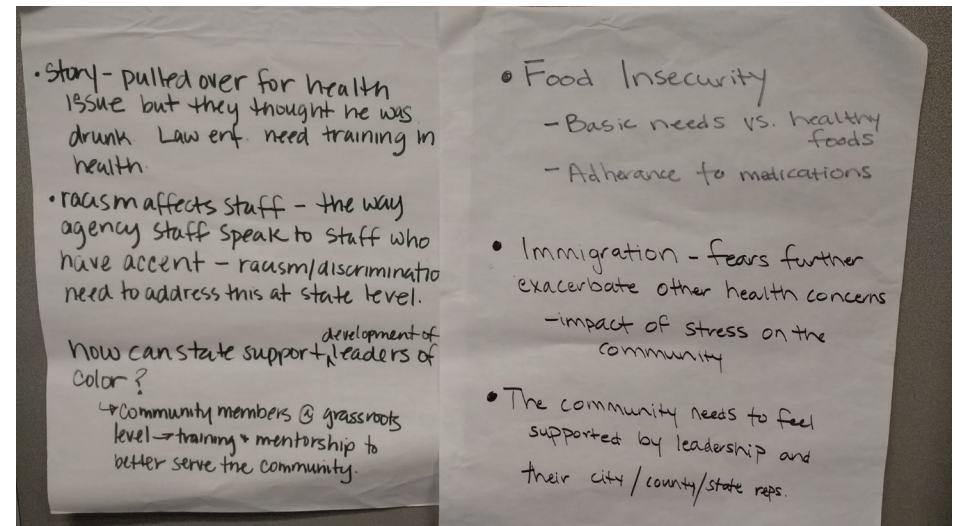 • Story - pulled over for health
issue but they thought he was
drunk. Law enf. need training in
health.
• racism affects staff - the way
agency staff speak to staff who
have accent - racism/discriminatio
need to address this at state level.
development of
how can state support ^ leaders of
color?
↳ community members @ grassroots
level → training + mentorship to
better serve the community.
• Food Insecurity
- Basic needs vs. healthy
foods
- Adherance to medications
• Immigration - fears further
exacerbate other health concerns
- impact of stress on the
community
• The community needs to feel
supported by leadership and
their city/county/state reps.